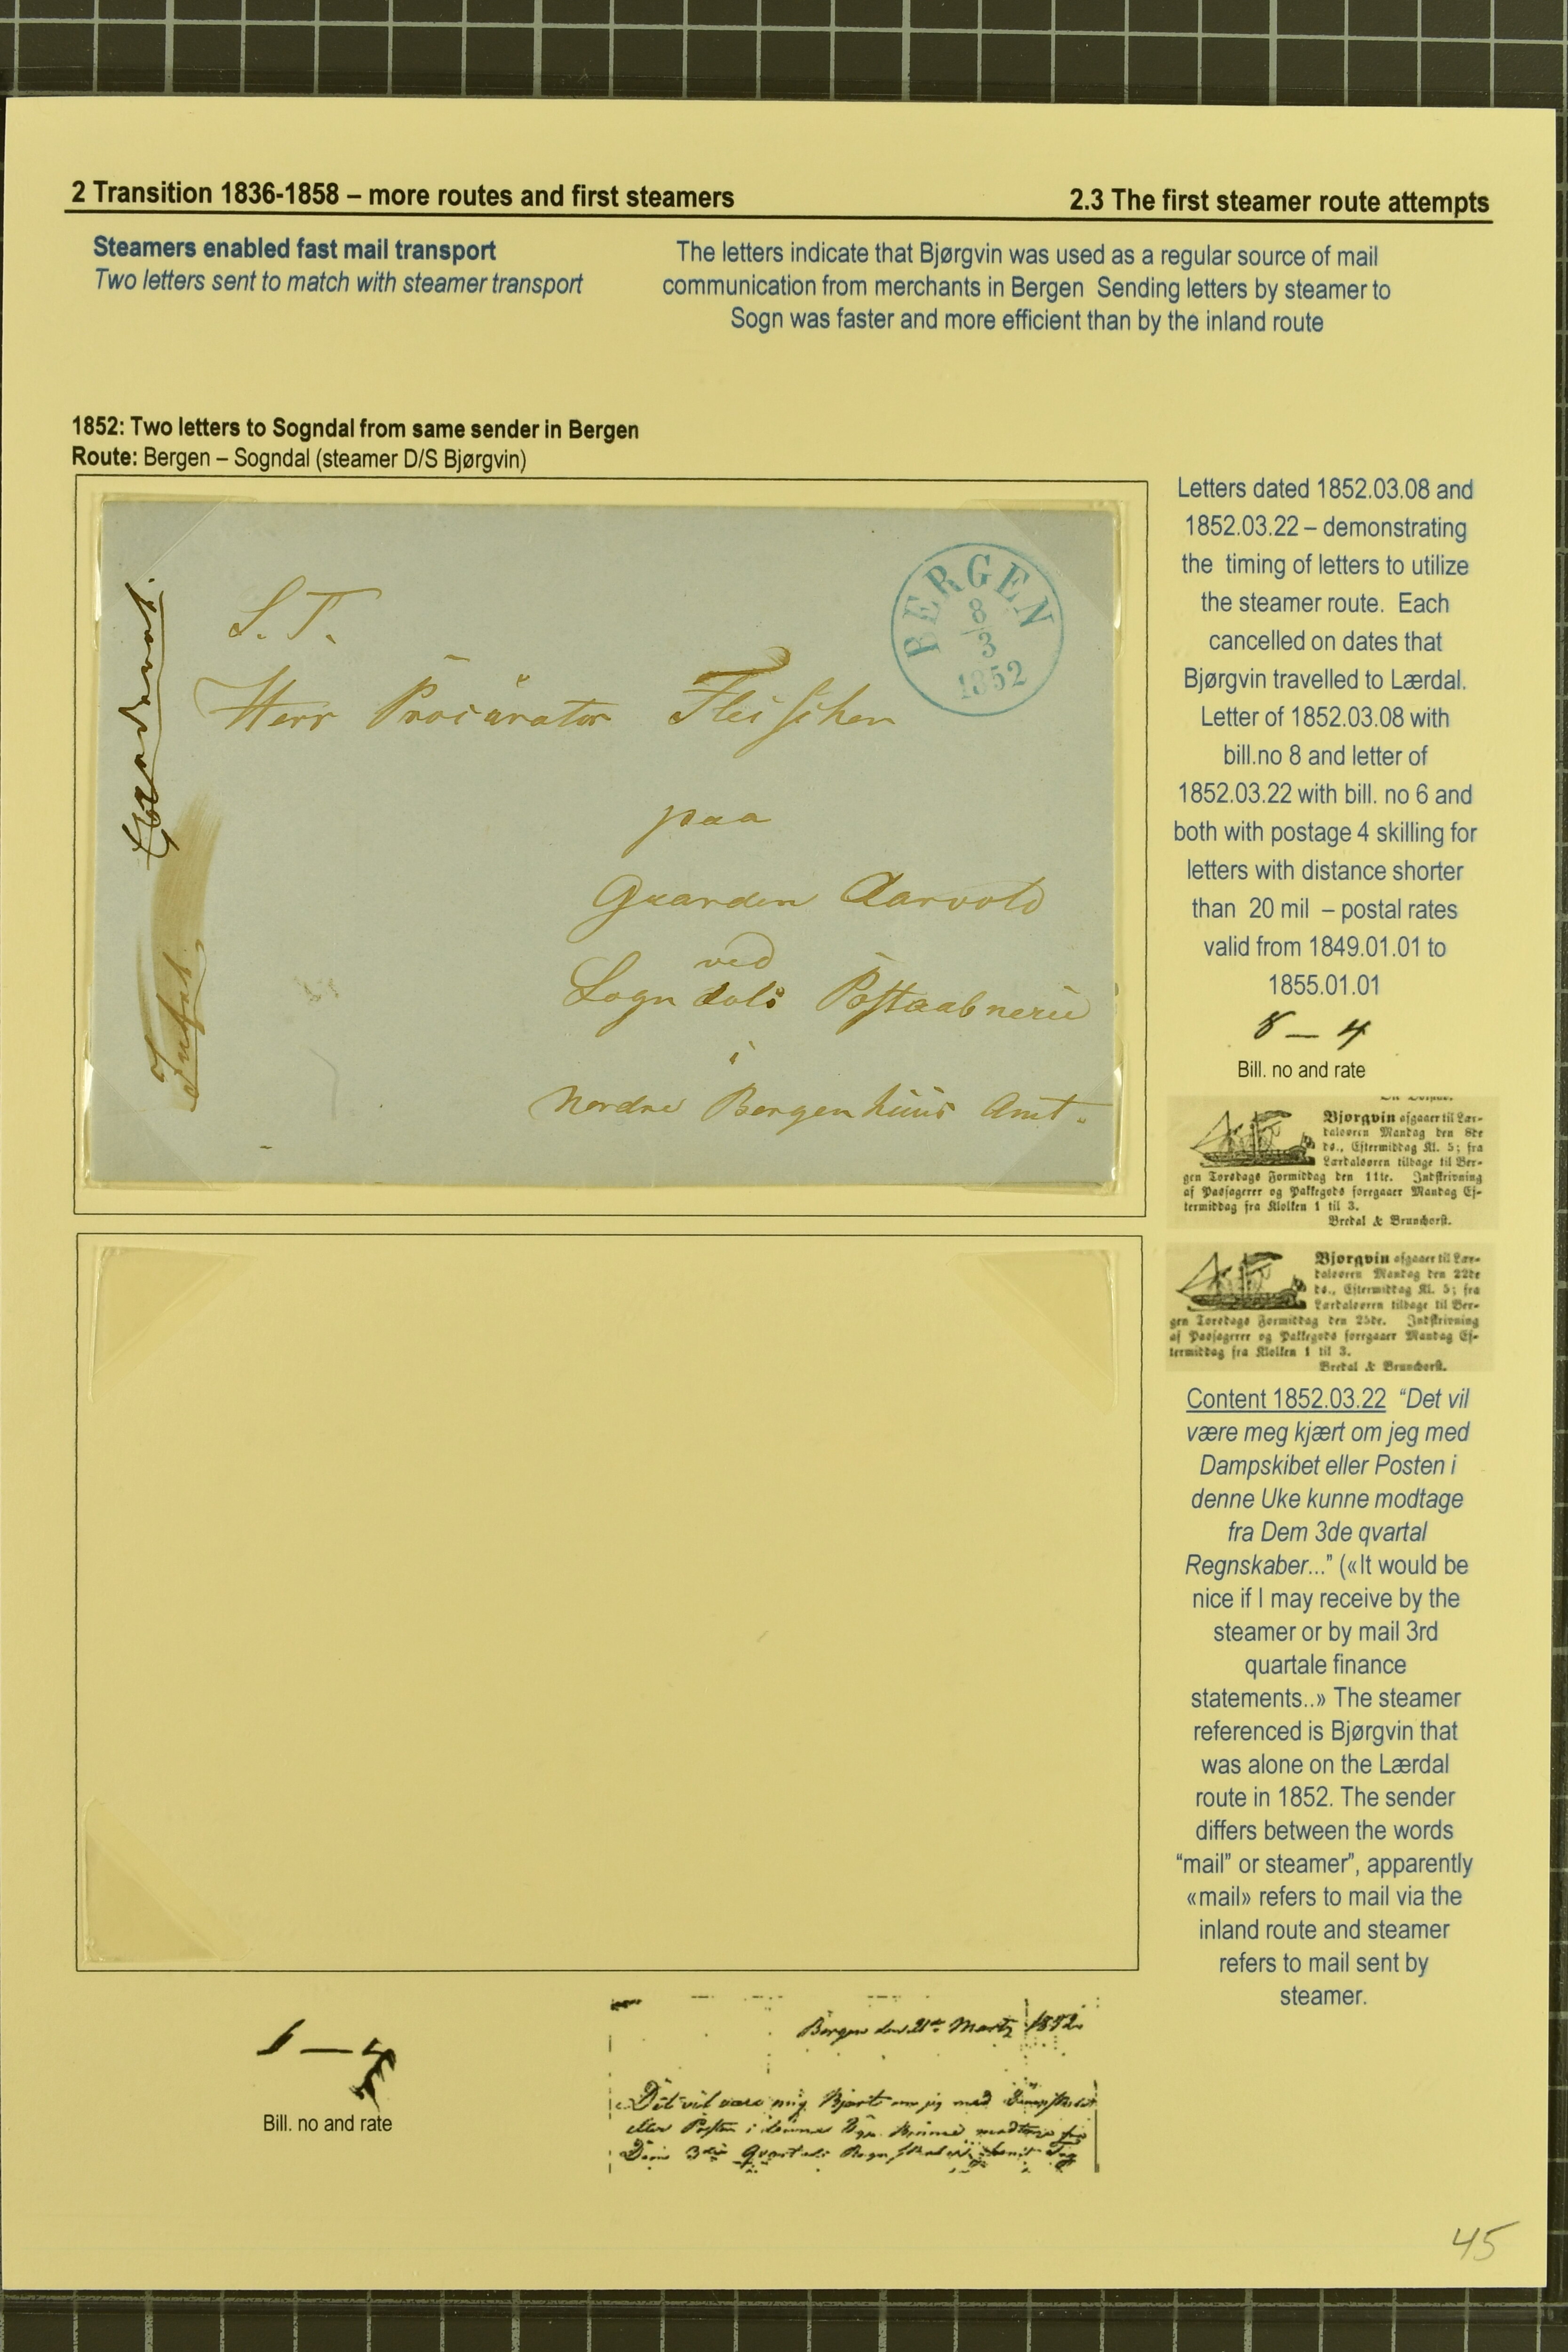 2 Transition 1836-1858 – more routes and first steamers
2.3 The first steamer route attempts
Steamers enabled fast mail transport
Two letters sent to match with steamer transport
The letters indicate that Bjørgvin was used as a regular source of mail
communication from merchants in Bergen Sending letters by steamer to
Sogn was faster and more efficient than by the inland route
1852: Two letters to Sogndal from same sender in Bergen
Route: Bergen – Sogndal (steamer D/S Bjørgvin)
BERGEN
8
3
1852
S. T.
Herr Procurator Fleischer
paa
Gaarden Aarvold
ved
Sogndals Postaabnerie
i
Nordre Bergenhuus Amt.
Letters dated 1852.03.08 and
1852.03.22 – demonstrating
the timing of letters to utilize
the steamer route. Each
cancelled on dates that
Bjørgvin travelled to Lærdal.
Letter of 1852.03.08 with
bill.no 8 and letter of
1852.03.22 with bill. no 6 and
both with postage 4 skilling for
letters with distance shorter
than 20 mil – postal rates
valid from 1849.01.01 to
1855.01.01
8 — 4
Bill. no and rate
Bjørgvin afgaaer til Lær-
dalsøren Mandag den 8de
ds., Eftermiddag Kl. 5; fra
Lærdalsøren tilbage til Ber-
gen Torsdags Formiddag den 11te. Indskrivning
af Passagerer og Pakkegods foregaaer Mandag Ef-
termiddag fra Klokken 1 til 3.
Bredal & Brunchorst.
Bjørgvin afgaaer til Lær-
dalsøren Mandag den 22de
ds., Eftermiddag Kl. 5; fra
Lærdalsøren tilbage til Ber-
gen Torsdags Formiddag den 25de. Indskrivning
af Passagerer og Pakkegods foregaaer Mandag Ef-
termiddag fra Klokken 1 til 3.
Bredal & Brunchorst.
Content 1852.03.22 “Det vil
være meg kjært om jeg med
Dampskibet eller Posten i
denne Uke kunne modtage
fra Dem 3de qvartal
Regnskaber...” («It would be
nice if I may receive by the
steamer or by mail 3rd
quartale finance
statements..» The steamer
referenced is Bjørgvin that
was alone on the Lærdal
route in 1852. The sender
differs between the words
“mail” or steamer”, apparently
«mail» refers to mail via the
inland route and steamer
refers to mail sent by
steamer.
6 — 4
Bill. no and rate
Bergen den 21de Martz 1852
Det vil være mig kjært om jeg med Dampskibet
eller Posten i denne Uge kunne modtage fra
Dem 3die Qvartals Regnskaber
45